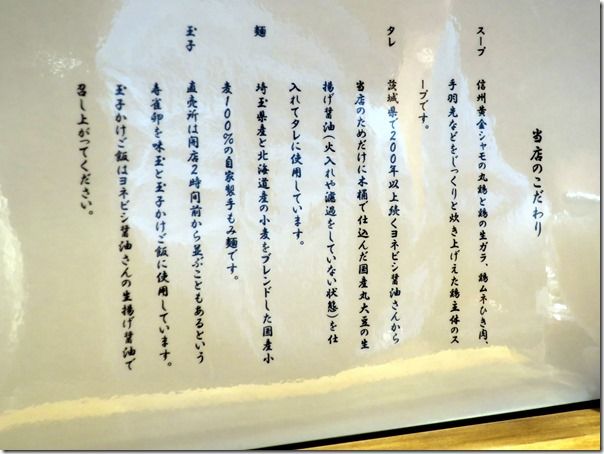 当店のこだわり
スープ　信州黄金シャモの丸鶏と鶏の生ガラ、鶏ムネひき肉、
手羽先などをじっくりと炊き上げえた鶏主体のス
ープです。
タレ　茨城県で200年以上続くヨネビシ醤油さんから
当店のためだけに木桶で仕込んだ国産丸大豆の生
揚げ醤油(火入れや濾過をしていない状態)を仕
入れてタレに使用しています。
麺　埼玉県産と北海道産の小麦をブレンドした国産小
麦100%の自家製手もみ麺です。
玉子　直売所は開店2時間前から並ぶこともあるという
寿雀卵を味玉と玉子かけご飯に使用しています。
玉子かけご飯はヨネビシ醤油さんの生揚げ醤油で
召し上がってください。